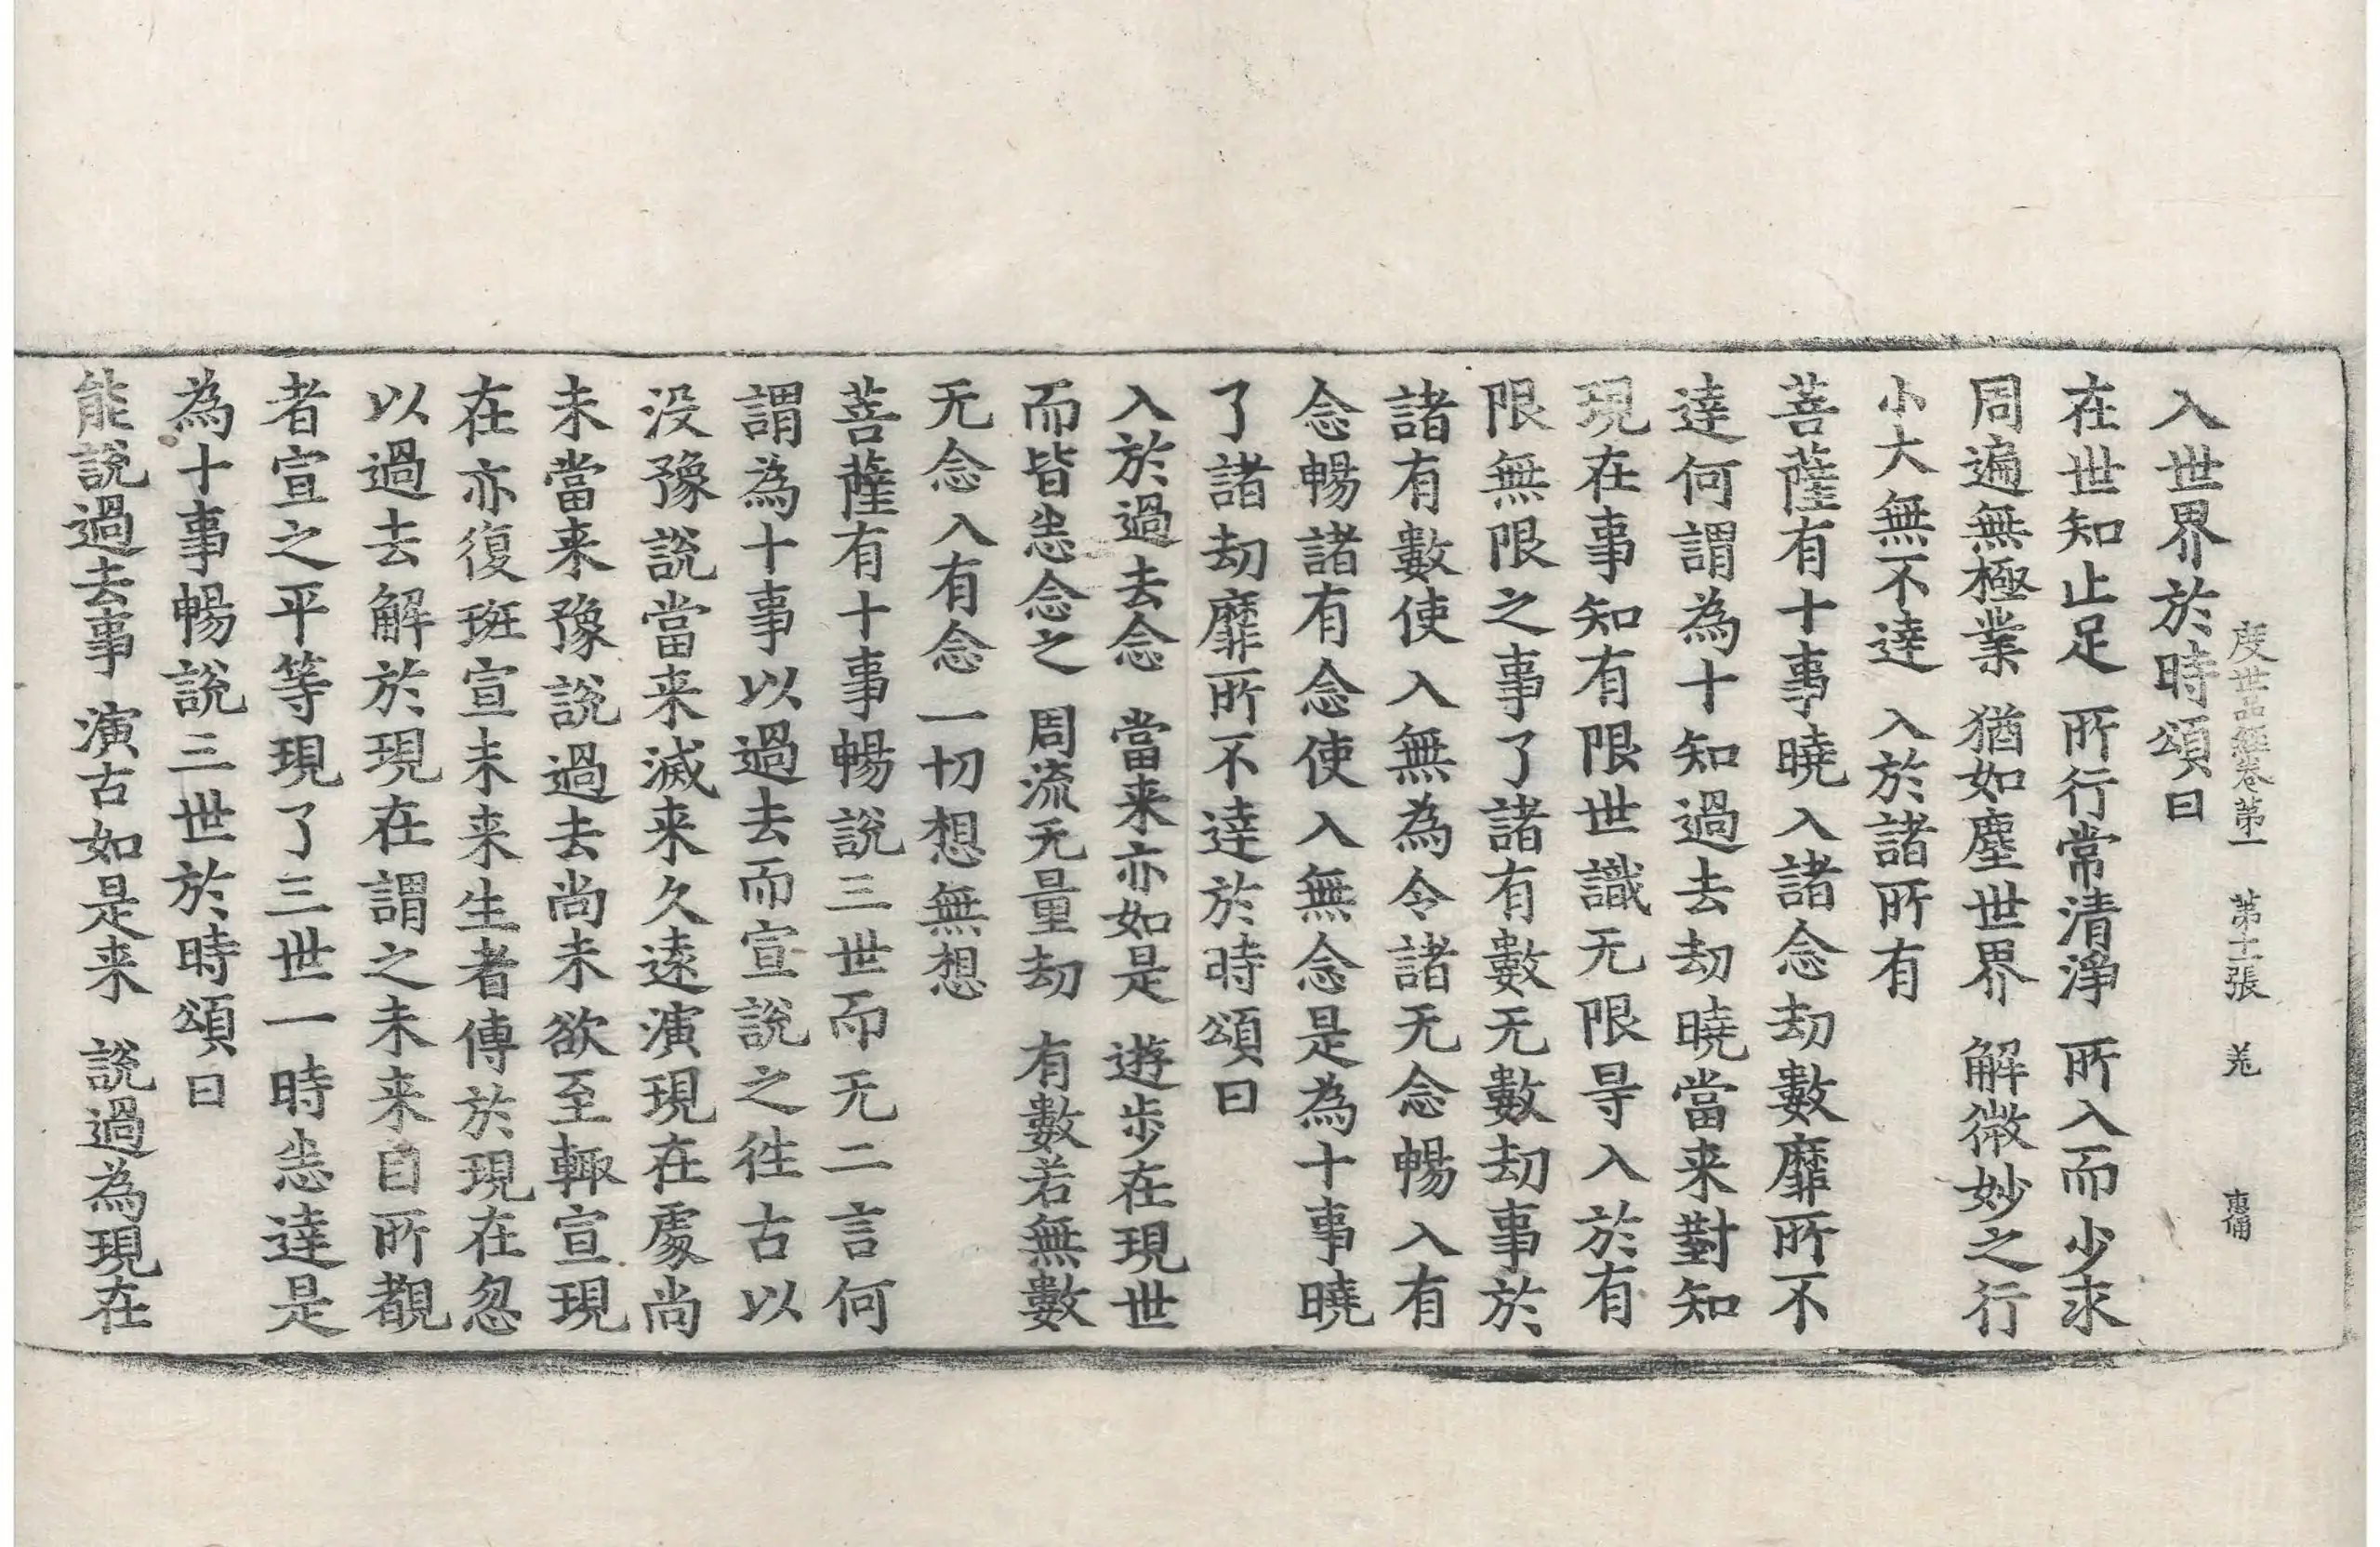 度世品經卷第一 第十一張 羌 惠甫
入世界於時頌曰
在世知止足 所行常清淨 所入而少求
周遍無極業 猶如塵世界 解微妙之行
小大無不達 入於諸所有
菩薩有十事曉入諸念劫數靡所不
達何謂為十知過去劫曉當来對知
現在事知有限世識无限㝵入於有
限無限之事了諸有數无數劫事於
諸有數使入無為令諸无念暢入有
念暢諸有念使入無念是為十事曉
了諸劫靡所不達於時頌曰
入於過去念 當来亦如是 遊步在現世
而皆悉念之 周流无量劫 有數若無數
无念入有念 一切想無想
菩薩有十事暢說三世而无二言何
謂為十事以過去而宣說之徃古以
没豫說當来滅来久遠演現在處尚
未當来豫說過去尚未欲至輙宣現
在亦復班宣未来生者傳於現在忽
以過去解於現在謂之未来自所覩
者宣之平等現了三世一時悉達是
為十事暢說三世於時頌曰
能說過去事 演古如是来 說過為現在